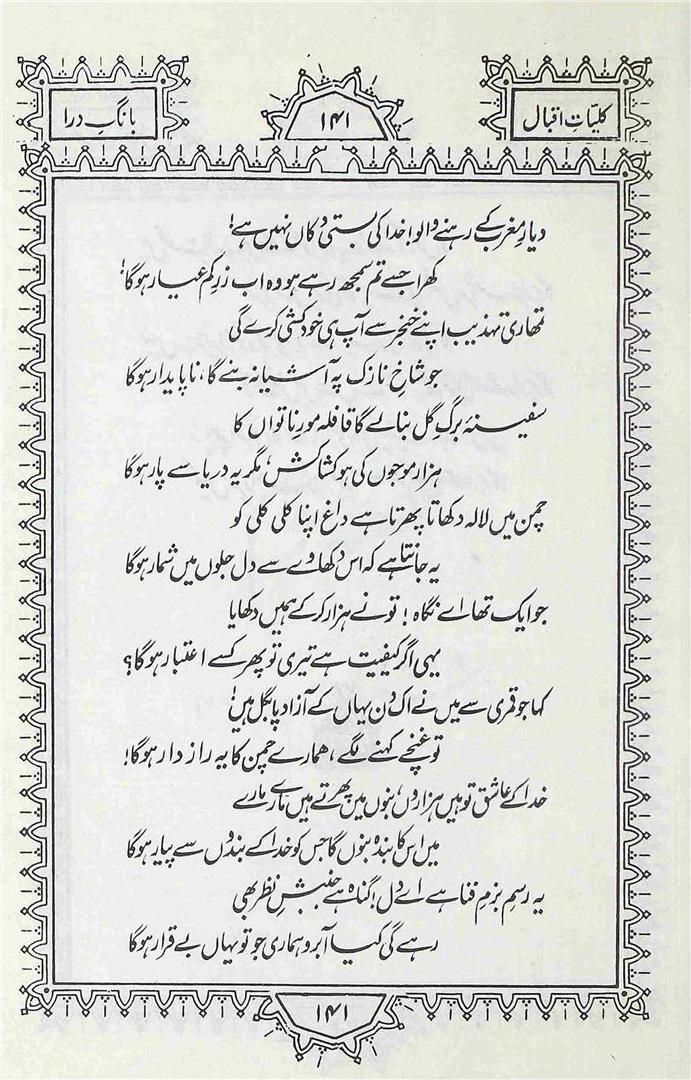 کلیّاتِ اقبال
۱۴۱
بانگِ درا
دیارِ مغرب کے رہنے والو! خدا کی بستی دکاں نہیں ہے!
کھرا جسے تم سمجھ رہے ہو وہ اب زرِ کم عیار ہوگا!
تمھاری تہذیب اپنے خنجر سے آپ ہی خودکشی کرے گی
جو شاخِ نازک پہ آشیانہ بنے گا، ناپایدار ہوگا
سفینۂ برگِ گل بنا لے گا قافلہ مورِ ناتواں کا
ہزار موجوں کی ہو کشاکش، مگر یہ دریا سے پار ہوگا
چمن میں لالہ دکھاتا پھرتا ہے داغ اپنا کلی کلی کو
یہ جانتا ہے کہ اس دکھاوے سے دل جلوں میں شمار ہوگا
جو ایک تھا اے نگاہ! تو نے ہزار کرکے ہمیں دکھایا
یہی اگر کیفیت ہے تیری تو پھر کسے اعتبار ہوگا؟
کہا جو قمری سے میں نے اک دن یہاں کے آزاد پا بگل ہیں!
تو غنچے کہنے لگے، ہمارے چمن کا یہ رازدار ہوگا!
خدا کے عاشق تو ہیں ہزاروں، بنوں میں پھرتے ہیں مارے مارے
میں اس کا بندہ بنوں گا جس کو خدا کے بندوں سے پیار ہوگا
یہ رسمِ بزمِ فنا ہے اے دل! گناہ ہے جنبشِ نظر بھی
رہے گی کیا آبرو ہماری جو تو یہاں بے قرار ہوگا
۱۴۱